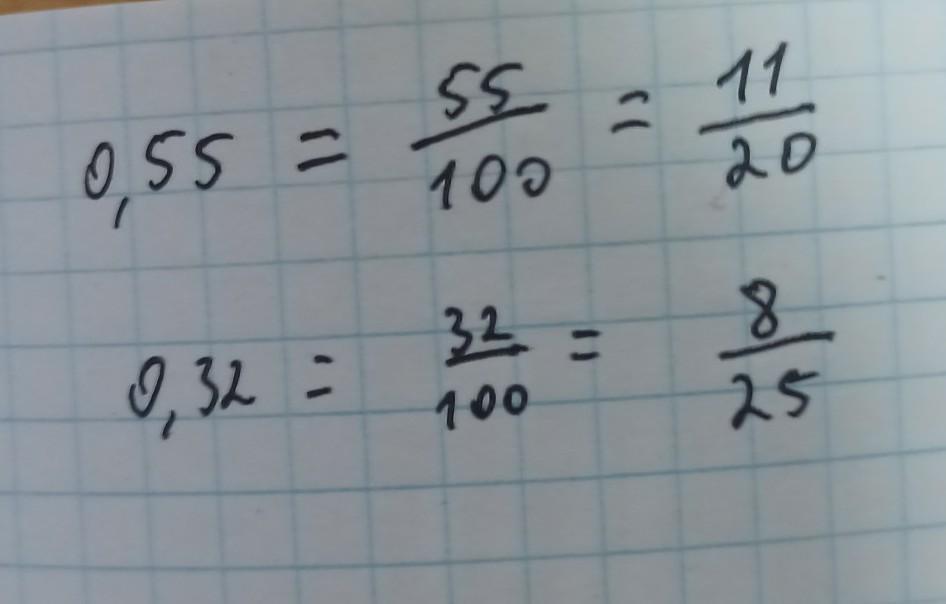 0,55 = 55/100 = 11/20
0,32 = 32/100 = 8/25